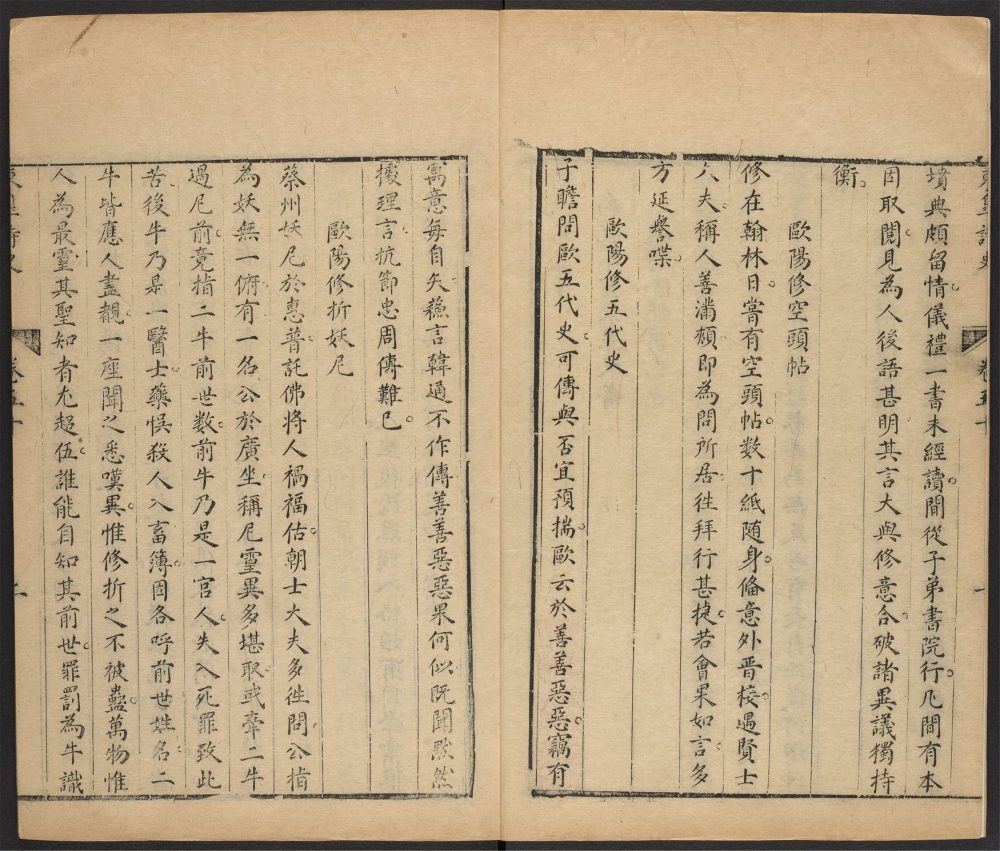 墳典頗留情儀禮一書未經讀間從子弟書院行几間有本
因取閱見為人後語甚明其言大與修意合破諸異議獨持
衡
歐陽修空頭帖
修在翰林日嘗有空頭帖數十紙隨身備意外晋接遇賢士
大夫稱人善滿頰即為問所居徃拜行甚㨗若會果如言多
方延譽喋
歐陽修五代史
子瞻問歐五代史可傳與否宜預揣歐云於善善惡惡竊有
寓意毎自矢蘓言韓通不作傳善善惡惡果何似既聞黙然
據理言抗節忠周傳難已
歐陽修折妖尼
蔡州妖尼於惠普託佛將人禍福估朝士大夫多徃問公指
為妖無一俯有一名公於廣坐稱尼靈異多堪取或牽二牛
過尼前竟指二牛前世數前牛乃是一官人失入死罪致此
苦後牛乃是一醫士藥悞殺人入畜簿因各呼前世姓名二
牛皆應人盡覩一座聞之悉嘆異惟修折之不被蠱萬物惟
人為最靈其聖知者尤超伍誰能自知其前世罪罰為牛識
卷五十